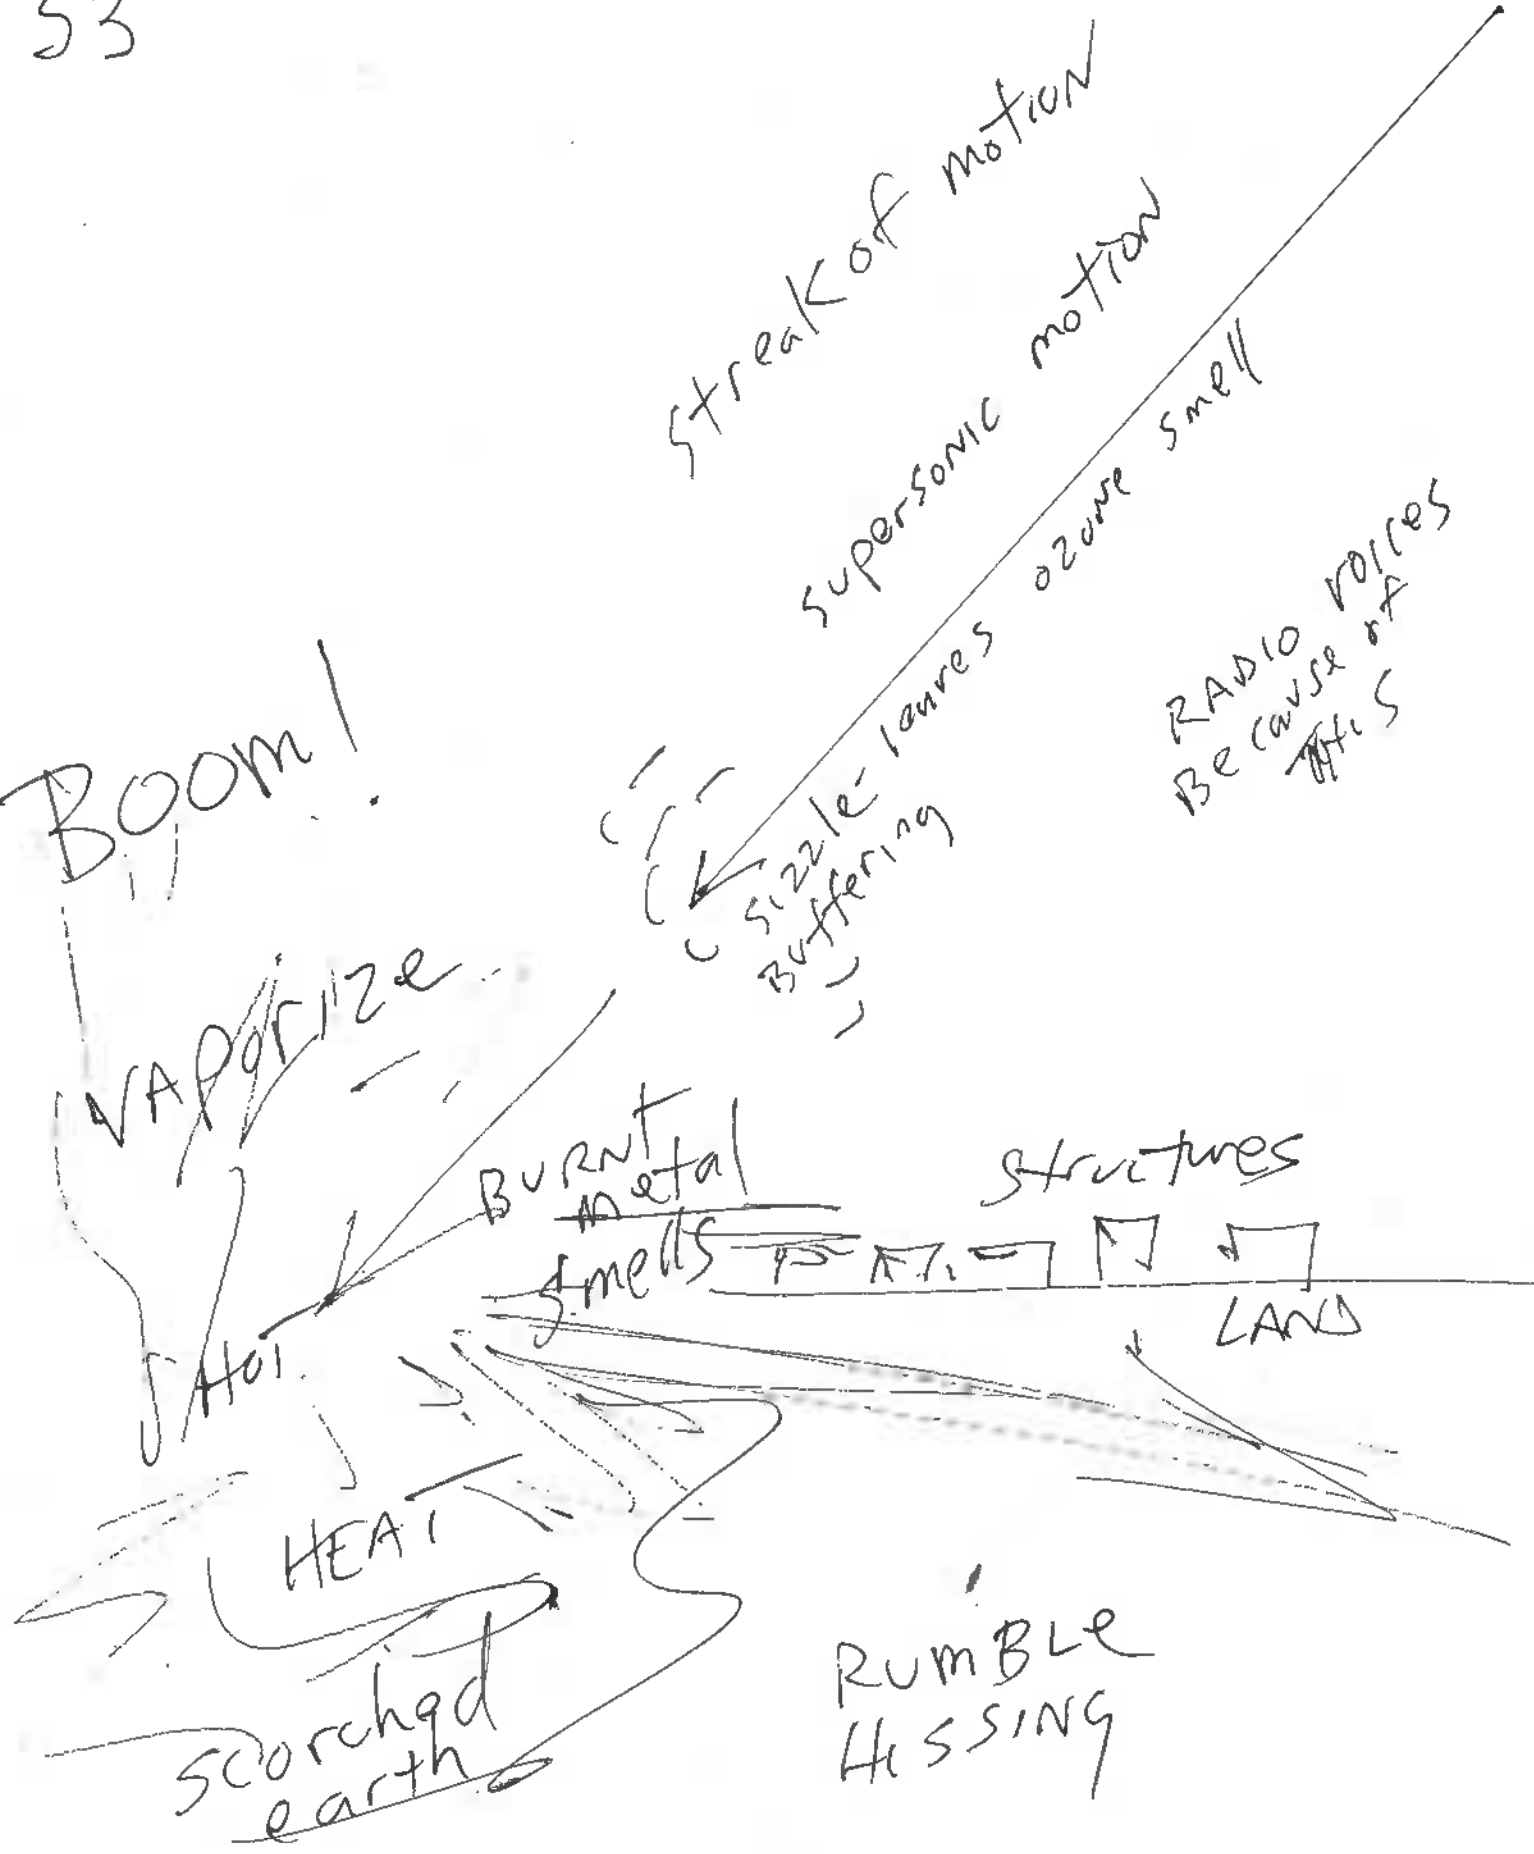 53
streak of motion
supersonic motion
sizzle- leaves ozone smell
Buffering
RADIO voices
Because of
this
BOOM!
VAPORIZE
BURNT
metal
smells
structures
LAND
HOT
HEAT
scorched
earth
RUMBLE
HISSING